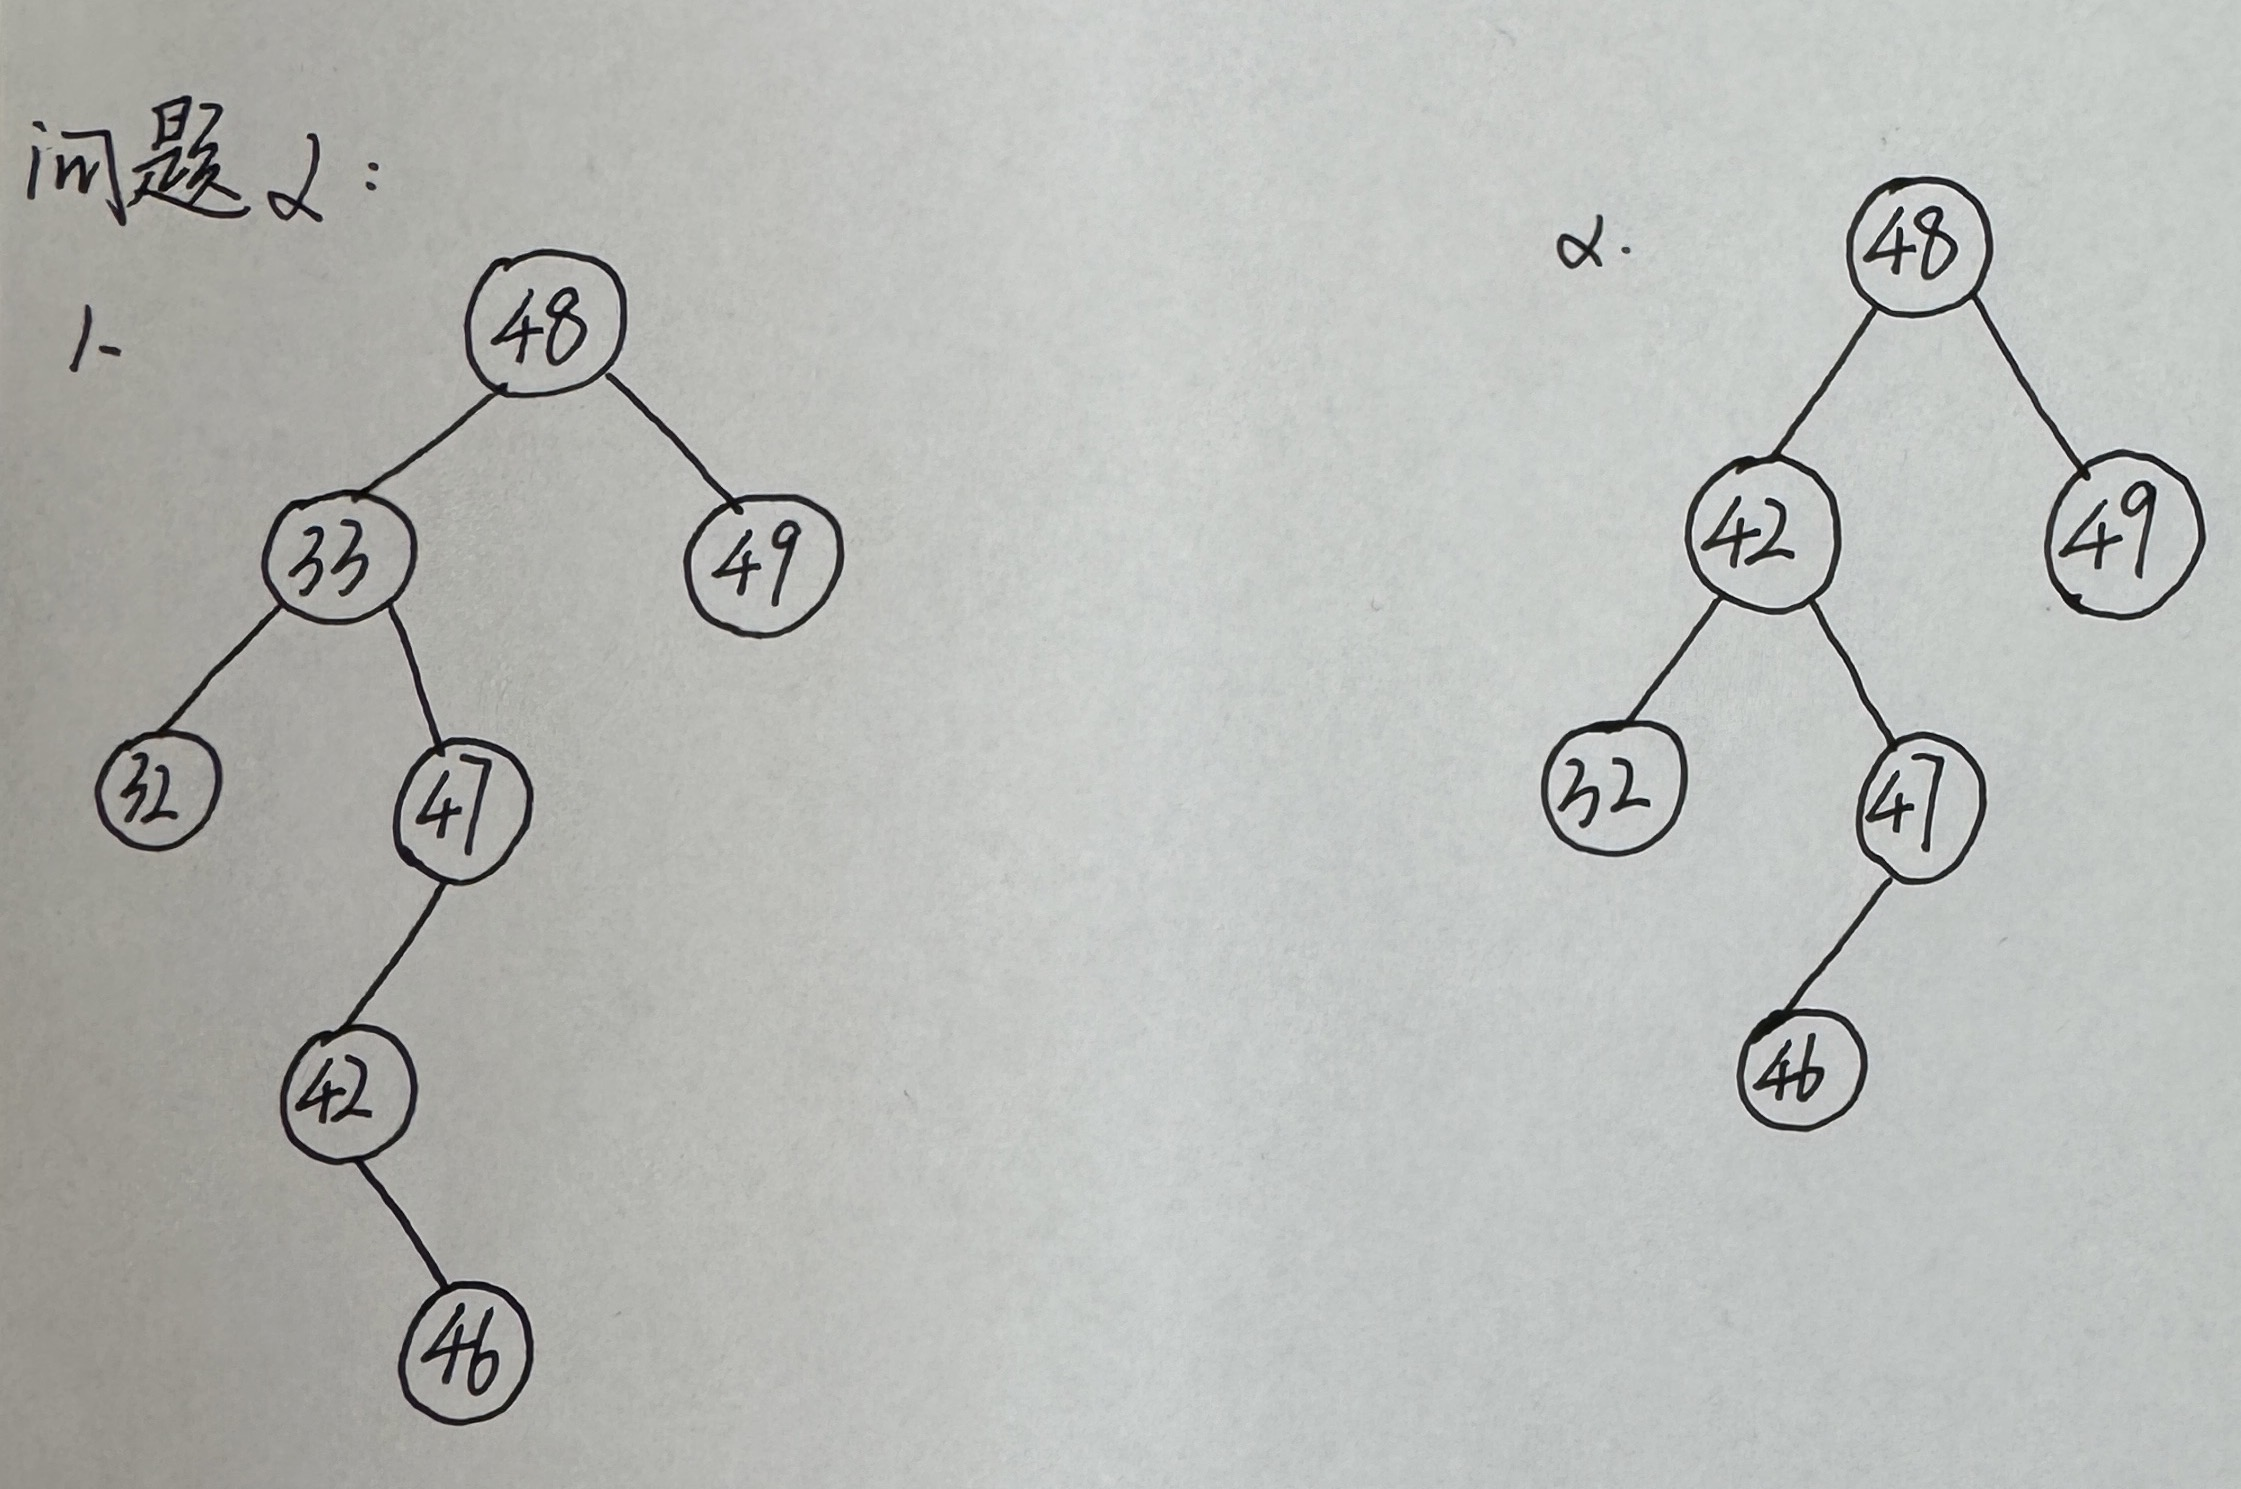 问题2:
1.
48
33
49
32
47
42
46
2.
48
42
49
32
47
46